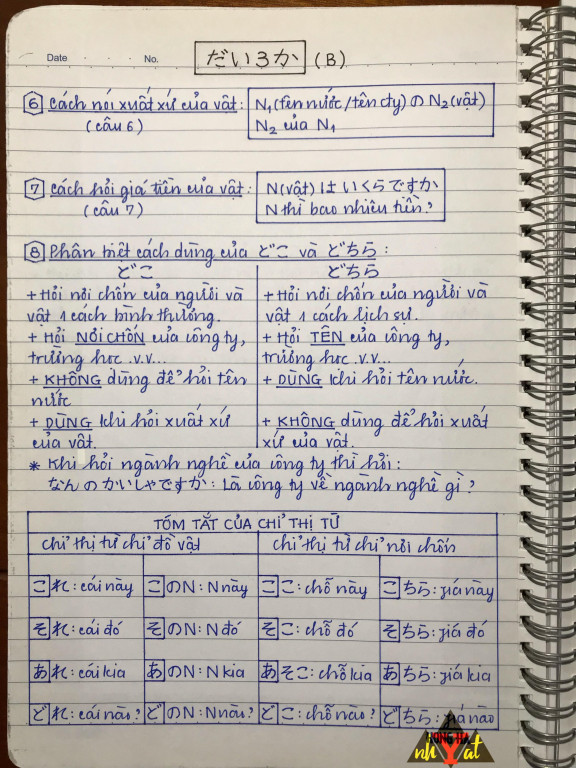 Date No.
だい3か (B)
6 Cách nói xuất xứ của vật: N₁(tên nước/tên cty) の N₂(vật)
(câu 6) N₂ của N₁
7 Cách hỏi giá tiền của vật: N(vật) は いくらですか
(câu 7) N thì bao nhiêu tiền?
8 Phân biệt cách dùng của どこ và どちら:
どこ
+ Hỏi nơi chốn của người và
vật 1 cách bình thường.
+ Hỏi NƠI CHỐN của công ty,
trường học .v.v...
+ KHÔNG dùng để hỏi tên
nước
+ DÙNG khi hỏi xuất xứ
của vật.
どちら
+ Hỏi nơi chốn của người và
vật 1 cách lịch sự.
+ Hỏi TÊN của công ty,
trường học .v.v...
+ DÙNG khi hỏi tên nước.
+ KHÔNG dùng để hỏi xuất
xứ của vật.
* Khi hỏi ngành nghề của công ty thì hỏi:
なんのかいしゃですか: Là công ty về ngành nghề gì?
TÓM TẮT CỦA CHỈ THỊ TỪ
chỉ thị từ chỉ đồ vật chỉ thị từ chỉ nơi chốn
これ: cái này このN: N này ここ: chỗ này こちら: phía này
それ: cái đó そのN: N đó そこ: chỗ đó そちら: phía đó
あれ: cái kia あのN: N kia あそこ: chỗ kia あちら: phía kia
どれ: cái nào? どのN: N nào? どこ: chỗ nào? どちら: phía nào
nhYat